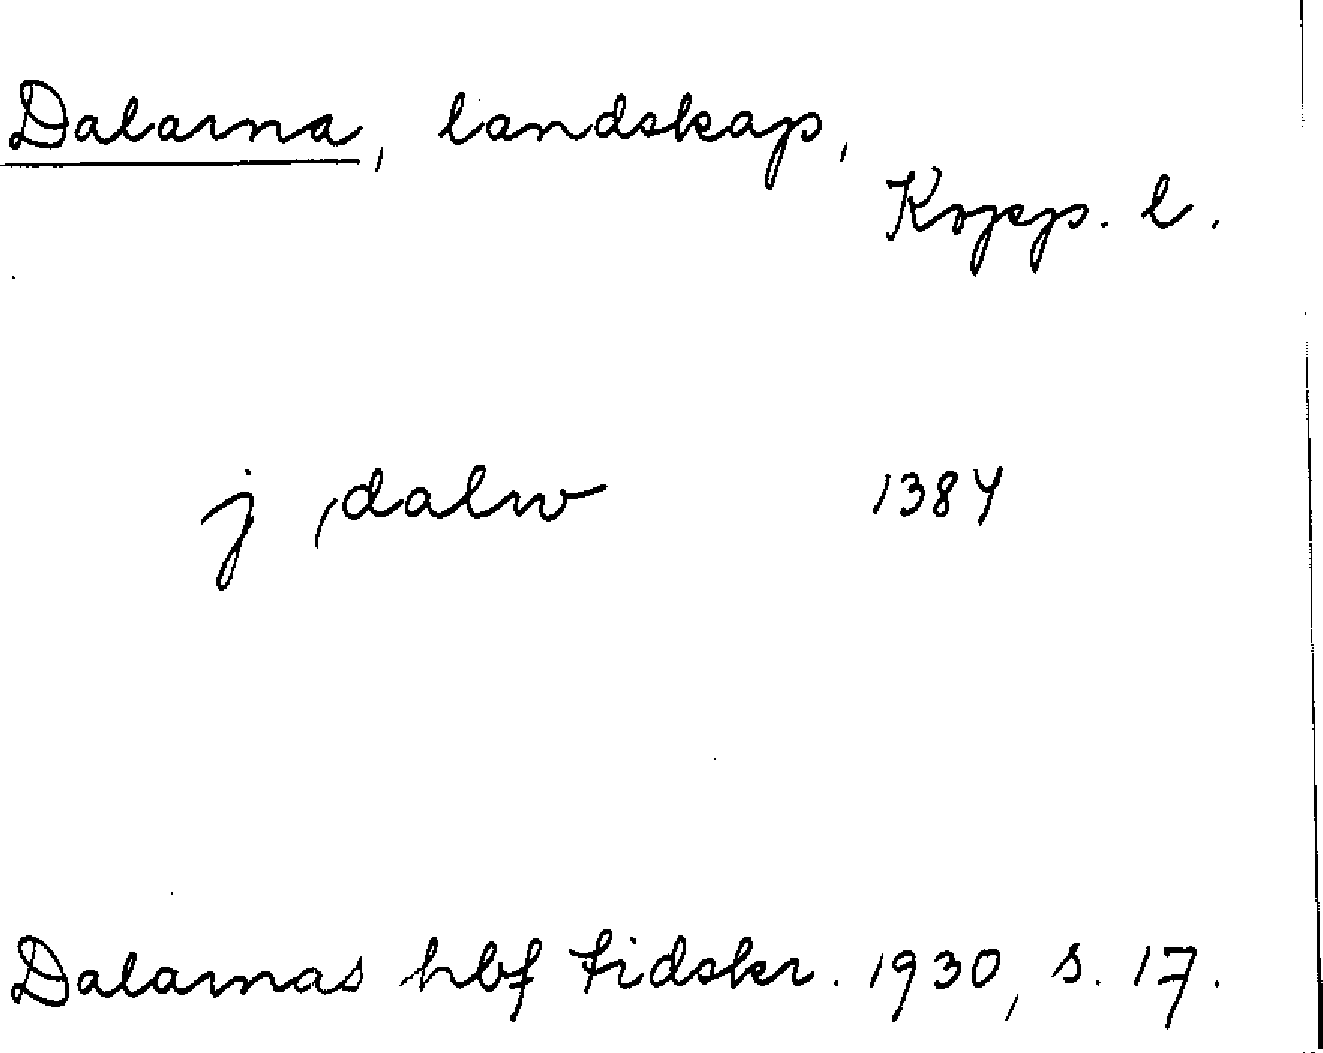 Dalarna, landskap,
Kopp. l.
j (dalw 1384
Dalarnas hbf tidskr. 1930, s. 17.